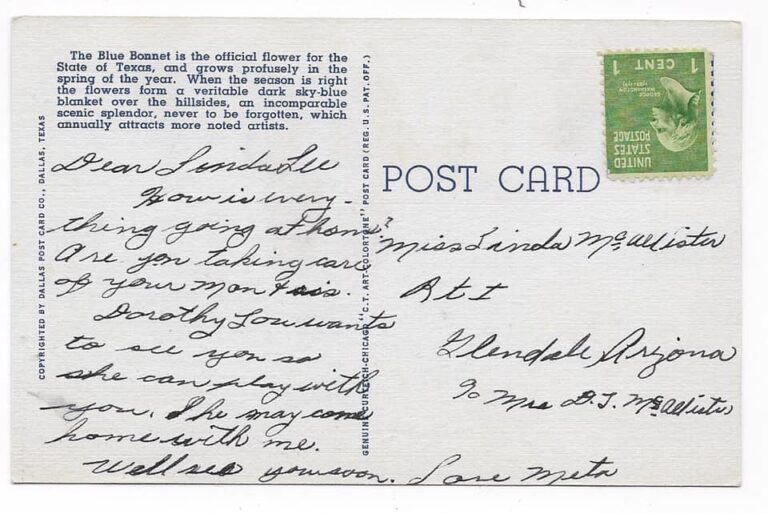 The Blue Bonnet is the official flower for the
State of Texas, and grows profusely in the
spring of the year. When the season is right
the flowers form a veritable dark sky-blue
blanket over the hillsides, an incomparable
scenic splendor, never to be forgotten, which
annually attracts more noted artists.
COPYRIGHTED BY DALLAS POST CARD CO., DALLAS, TEXAS
Dear Linda Lee
How is every-
thing going at home?
Are you taking care
of your Mom & sis.
Dorothy Lou wants
to see you so
she can play with
you. She may come
home with me.
Well see you soon. Love Meta
GENUINE CURTEICH-CHICAGO "C.T. ART-COLORTONE" POST CARD (REG. U.S. PAT. OFF.)
POST CARD
UNITED
STATES
POSTAGE
GEORGE
WASHINGTON
1 CENT 1
Miss Linda McAllister
Rt I
Glendale Arizona
℅ Mrs D.T. McAllister